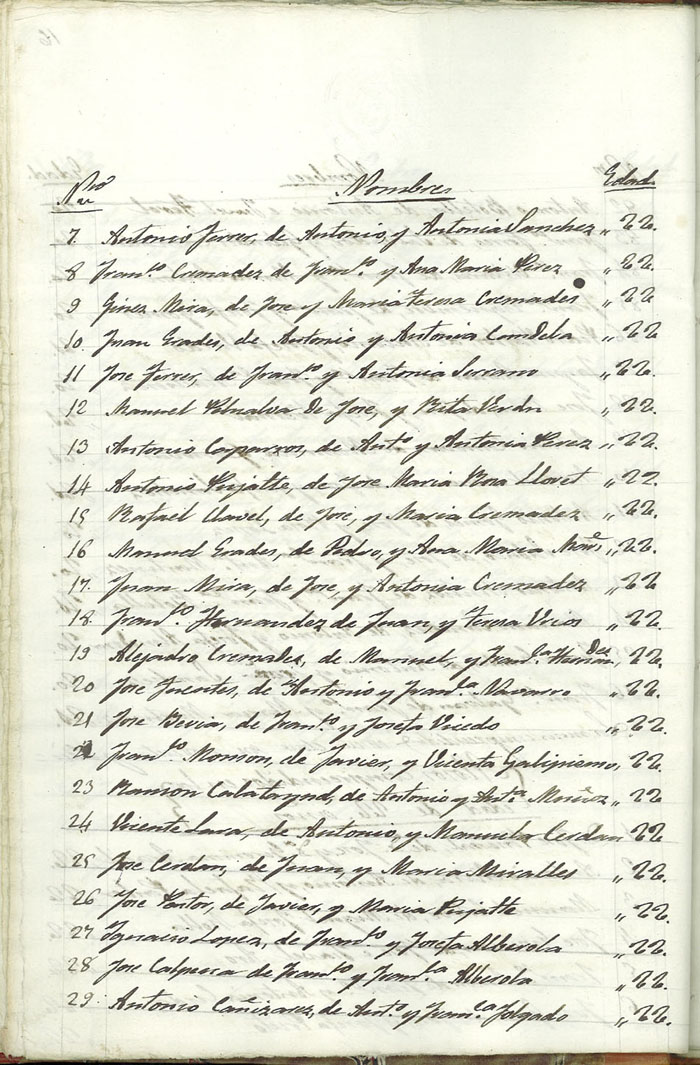 Nro Nombres Edad
7. Antonio Ferrer, de Antonio, y Antonia Sanchez „ 22.
8 Franco Cremadez de Franco y Ana Maria Perez „ 22.
9 Ginez Mira, de Jose y Maria Teresa Cremades „ 22
10. Juan Grades, de Antonio y Antonia Candela „ 22
11 Jose Ferrer, de Franco y Antonia Serrano „ 22.
12 Manuel Penalva de Jose, y Rita Verdu „ 22.
13 Antonio Caparros, de Anto y Antonia Perez „ 22.
14 Antonio Pujalte, de Jose Maria Rosa Lloret „ 22.
15 Rafael Clavel, de Jose, y Maria Cremadez „ 22.
16 Manuel Grades, de Pedro, y Ana Maria „ 22.
17. Juan Mira, de Jose, y Antonia Cremadez „ 22
18. Franco Hernandez de Juan, y Teresa Vrios „ 22.
19 Alejandro Cremades, de Manuel, y Franca Hernandez, 22.
20 Jose Fuentes, de Antonio y Franca Navarro „ 22.
21 Jose Bevia, de Franco y Josefa Vicedo „ 22.
22 Franco Monzon, de Javier, y Vicenta Galipienso, 22.
23 Ramon Calatayud, de Antonio y Anta Muñoz „ 22
24 Vicente Lara, de Antonio, y Manuela Cerdan 22
25 Jose Cerdan, de Juan, y Maria Miralles „ 22.
26 Jose Pastor, de Javier, y Maria Pujalte „ 22.
27 Ygnacio Lopez, de Franco y Josefa Alberola „ 22.
28 Jose Calpena de Franco y Franca Alberola „ 22.
29. Antonio Cañizares, de Anto y Franca Folgado „ 22.